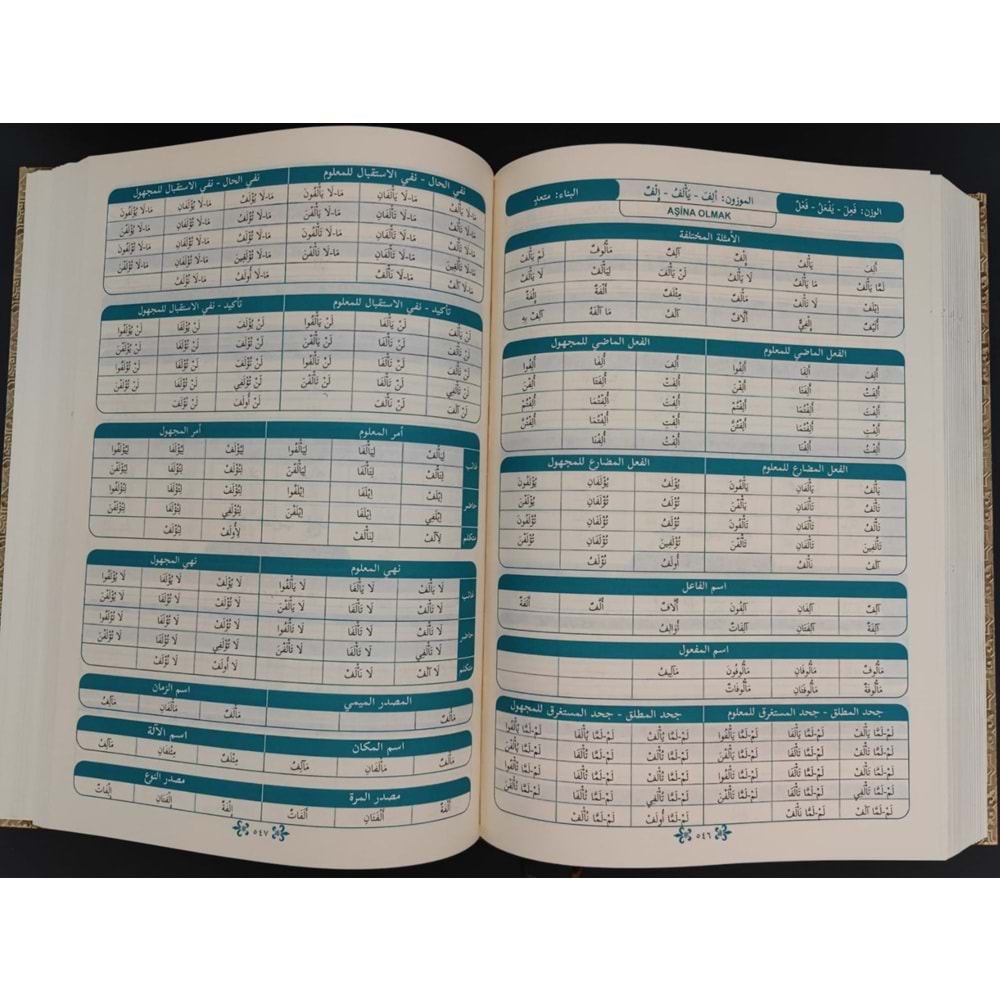 الوزن: فَعِلَ - يَفْعَلُ - فَعْلٌ الموزون: أَلِفَ - يَأْلَفُ - إِلْفٌ البناء: متعدٍ
AŞİNA OLMAK
الأمثلة المختلفة
أَلِفَ يَأْلَفُ إِلْفٌ آلِفٌ مَأْلُوفٌ لَمْ يَأْلَفْ
لَمَّا يَأْلَفْ مَا يَأْلَفُ لَا يَأْلَفُ لَنْ يَأْلَفَ لِيَأْلَفْ لَا يَأْلَفْ
اِيْلَفْ لَا تَأْلَفْ مَأْلَفٌ مِئْلَفٌ أَلْفَةٌ إِلْفَةٌ
الفعل الماضي للمعلوم الفعل الماضي للمجهول
أَلِفَ أَلِفَا أَلِفُوا أُلِفَ أُلِفَا أُلِفُوا
أَلِفَتْ أَلِفَتَا أَلِفْنَ أُلِفَتْ أُلِفَتَا أُلِفْنَ
أَلِفْتَ أَلِفْتُمَا أَلِفْتُمْ أُلِفْتَ أُلِفْتُمَا أُلِفْتُمْ
أَلِفْتِ أَلِفْتُمَا أَلِفْتُنَّ أُلِفْتِ أُلِفْتُمَا أُلِفْتُنَّ
أَلِفْتُ أَلِفْنَا أُلِفْتُ أُلِفْنَا
الفعل المضارع للمعلوم الفعل المضارع للمجهول
يَأْلَفُ يَأْلَفَانِ يَأْلَفُونَ يُؤْلَفُ يُؤْلَفَانِ يُؤْلَفُونَ
تَأْلَفُ تَأْلَفَانِ يَأْلَفْنَ تُؤْلَفُ تُؤْلَفَانِ يُؤْلَفْنَ
تَأْلَفُ تَأْلَفَانِ تَأْلَفُونَ تُؤْلَفُ تُؤْلَفَانِ تُؤْلَفُونَ
تَأْلَفِينَ تَأْلَفَانِ تَأْلَفْنَ تُؤْلَفِينَ تُؤْلَفَانِ تُؤْلَفْنَ
آلَفُ نَأْلَفُ أُولَفُ نُؤْلَفُ
اسم الفاعل
آلِفٌ آلِفَانِ آلِفُونَ أُلَّافٌ أُلَّفٌ أَلَفَةٌ
آلِفَةٌ آلِفَتَانِ آلِفَاتٌ أَوَالِفُ
اسم المفعول
مَأْلُوفٌ مَأْلُوفَانِ مَأْلُوفُونَ مَآلِيفُ
مَأْلُوفَةٌ مَأْلُوفَتَانِ مَأْلُوفَاتٌ
جحد المطلق - جحد المستغرق للمعلوم جحد المطلق - جحد المستغرق للمجهول
لَمْ-لَمَّا يَأْلَفْ لَمْ-لَمَّا يَأْلَفَا لَمْ-لَمَّا يَأْلَفُوا لَمْ-لَمَّا يُؤْلَفْ لَمْ-لَمَّا يُؤْلَفَا لَمْ-لَمَّا يُؤْلَفُوا
لَمْ-لَمَّا نَأْلَفْ لَمْ-لَمَّا أُولَفْ لَمْ-لَمَّا نُؤْلَفْ
٥٤٦
نفي الحال - نفي الاستقبال للمعلوم نفي الحال - نفي الاستقبال للمجهول
مَا-لَا يَأْلَفُ مَا-لَا يَأْلَفَانِ مَا-لَا يَأْلَفُونَ مَا-لَا يُؤْلَفُ مَا-لَا يُؤْلَفَانِ مَا-لَا يُؤْلَفُونَ
مَا-لَا تَأْلَفُ مَا-لَا تَأْلَفَانِ مَا-لَا يَأْلَفْنَ مَا-لَا تُؤْلَفُ مَا-لَا تُؤْلَفَانِ مَا-لَا يُؤْلَفْنَ
مَا-لَا تَأْلَفُ مَا-لَا تَأْلَفَانِ مَا-لَا تَأْلَفُونَ مَا-لَا تُؤْلَفُ مَا-لَا تُؤْلَفَانِ مَا-لَا تُؤْلَفُونَ
مَا-لَا تَأْلَفِينَ مَا-لَا تَأْلَفَانِ مَا-لَا تَأْلَفْنَ مَا-لَا تُؤْلَفِينَ مَا-لَا تُؤْلَفَانِ مَا-لَا تُؤْلَفْنَ
مَا-لَا آلَفُ مَا-لَا نَأْلَفُ مَا-لَا أُولَفُ مَا-لَا نُؤْلَفُ
تأكيد - نفي الاستقبال للمعلوم تأكيد - نفي الاستقبال للمجهول
لَنْ يَأْلَفَ لَنْ يَأْلَفَا لَنْ يَأْلَفُوا لَنْ يُؤْلَفَ لَنْ يُؤْلَفَا لَنْ يُؤْلَفُوا
لَنْ تَأْلَفَ لَنْ تَأْلَفَا لَنْ يَأْلَفْنَ لَنْ تُؤْلَفَ لَنْ تُؤْلَفَا لَنْ يُؤْلَفْنَ
لَنْ تَأْلَفَ لَنْ تَأْلَفَا لَنْ تَأْلَفُوا لَنْ تُؤْلَفَ لَنْ تُؤْلَفَا لَنْ تُؤْلَفُوا
لَنْ تَأْلَفِي لَنْ تَأْلَفَا لَنْ تَأْلَفْنَ لَنْ تُؤْلَفِي لَنْ تُؤْلَفَا لَنْ تُؤْلَفْنَ
لَنْ آلَفَ لَنْ نَأْلَفَ لَنْ أُولَفَ لَنْ نُؤْلَفَ
أمر المعلوم أمر المجهول
غائب لِيَأْلَفْ لِيَأْلَفَا لِيَأْلَفُوا لِيُؤْلَفْ لِيُؤْلَفَا لِيُؤْلَفُوا
لِتَأْلَفْ لِتَأْلَفَا لِيَأْلَفْنَ لِتُؤْلَفْ لِتُؤْلَفَا لِيُؤْلَفْنَ
حاضر اِيْلَفْ اِيْلَفَا اِيْلَفُوا لِتُؤْلَفْ لِتُؤْلَفَا لِتُؤْلَفُوا
اِيْلَفِي اِيْلَفَا اِيْلَفْنَ لِتُؤْلَفِي لِتُؤْلَفَا لِتُؤْلَفْنَ
متكلم لِآلَفْ لِنَأْلَفْ لِأُولَفْ لِنُؤْلَفْ
نهي المعلوم نهي المجهول
غائب لَا يَأْلَفْ لَا يَأْلَفَا لَا يَأْلَفُوا لَا يُؤْلَفْ لَا يُؤْلَفَا لَا يُؤْلَفُوا
لَا تَأْلَفْ لَا تَأْلَفَا لَا يَأْلَفْنَ لَا تُؤْلَفْ لَا تُؤْلَفَا لَا يُؤْلَفْنَ
حاضر لَا تَأْلَفْ لَا تَأْلَفَا لَا تَأْلَفُوا لَا تُؤْلَفْ لَا تُؤْلَفَا لَا تُؤْلَفُوا
لَا تَأْلَفِي لَا تَأْلَفَا لَا تَأْلَفْنَ لَا تُؤْلَفِي لَا تُؤْلَفَا لَا تُؤْلَفْنَ
متكلم لَا آلَفْ لَا نَأْلَفْ لَا أُولَفْ لَا نُؤْلَفْ
المصدر الميمي اسم الزمان
مَأْلَفٌ مَأْلَفٌ مَأْلَفَانِ مَآلِفُ
اسم المكان اسم الآلة
مَأْلَفٌ مَأْلَفَانِ مَآلِفُ مِئْلَفٌ مِئْلَفَانِ مَآلِفُ
مصدر المرة مصدر النوع
أَلْفَةٌ أَلْفَتَانِ أَلْفَاتٌ إِلْفَةٌ إِلْفَتَانِ إِلْفَاتٌ
٥٤٧